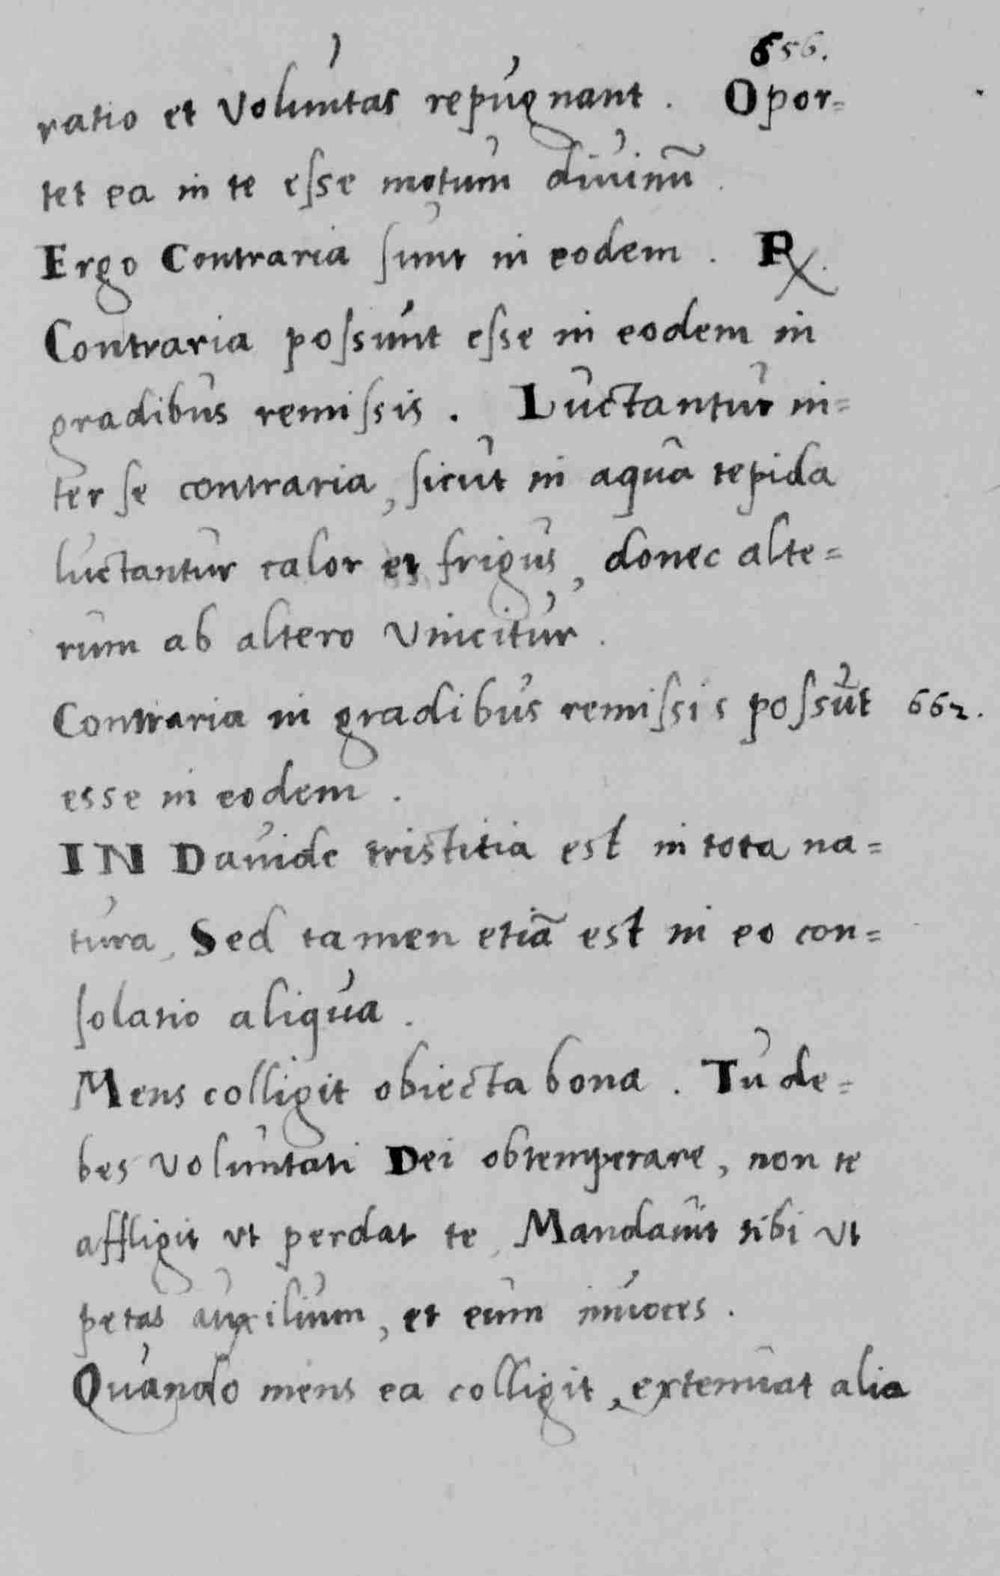 656.
ratio et voluntas repugnant. Opor=
tet ea in te esse motum diuinū.
Ergo Contraria sunt in eodem. ℞.
Contraria possunt esse in eodem in
gradibus remissis. Luctantur in=
ter se contraria, sicut in aqua tepida
luctantur calor et frigus, donec alte=
rum ab altero vincitur.
Contraria in gradibus remissis possūt 662.
esse in eodem.
IN Dauide tristitia est in tota na=
tura, Sed tamen etiā est in eo con=
solatio aliqua.
Mens colligit obiecta bona. Tu de=
bes voluntati Dei obtemperare, non te
affligit vt perdat te, Mandauit tibi vt
petas auxilium, et eum inuoces.
Quando mens ea colligit, extenuat alia